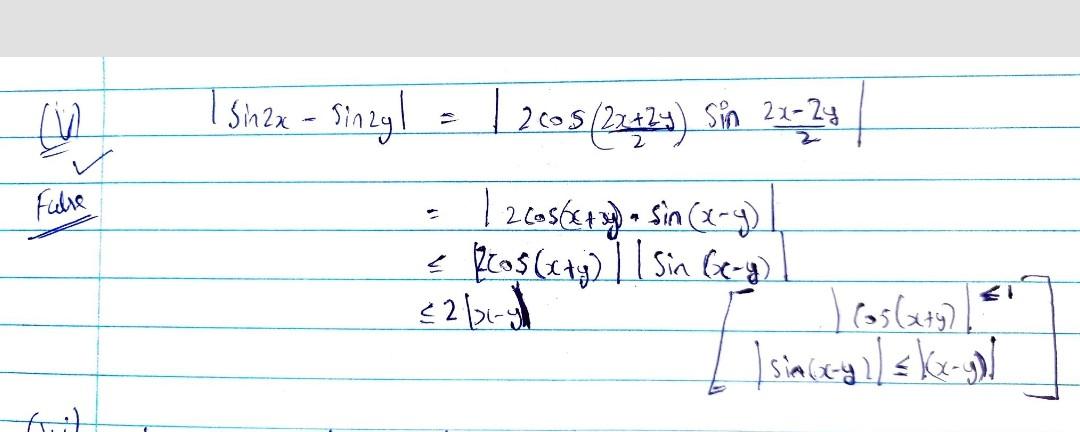 (v) |Sin2x - Sin2y| = |2cos(2x+2y)/2 Sin 2x-2y/2|
False
= |2cos(x+y) · sin(x-y)|
≤ |2cos(x+y)| |Sin(x-y)|
≤ 2|x-y|
[ |cos(x+y)| ≤1
|sin(x-y)| ≤ |(x-y)| ]